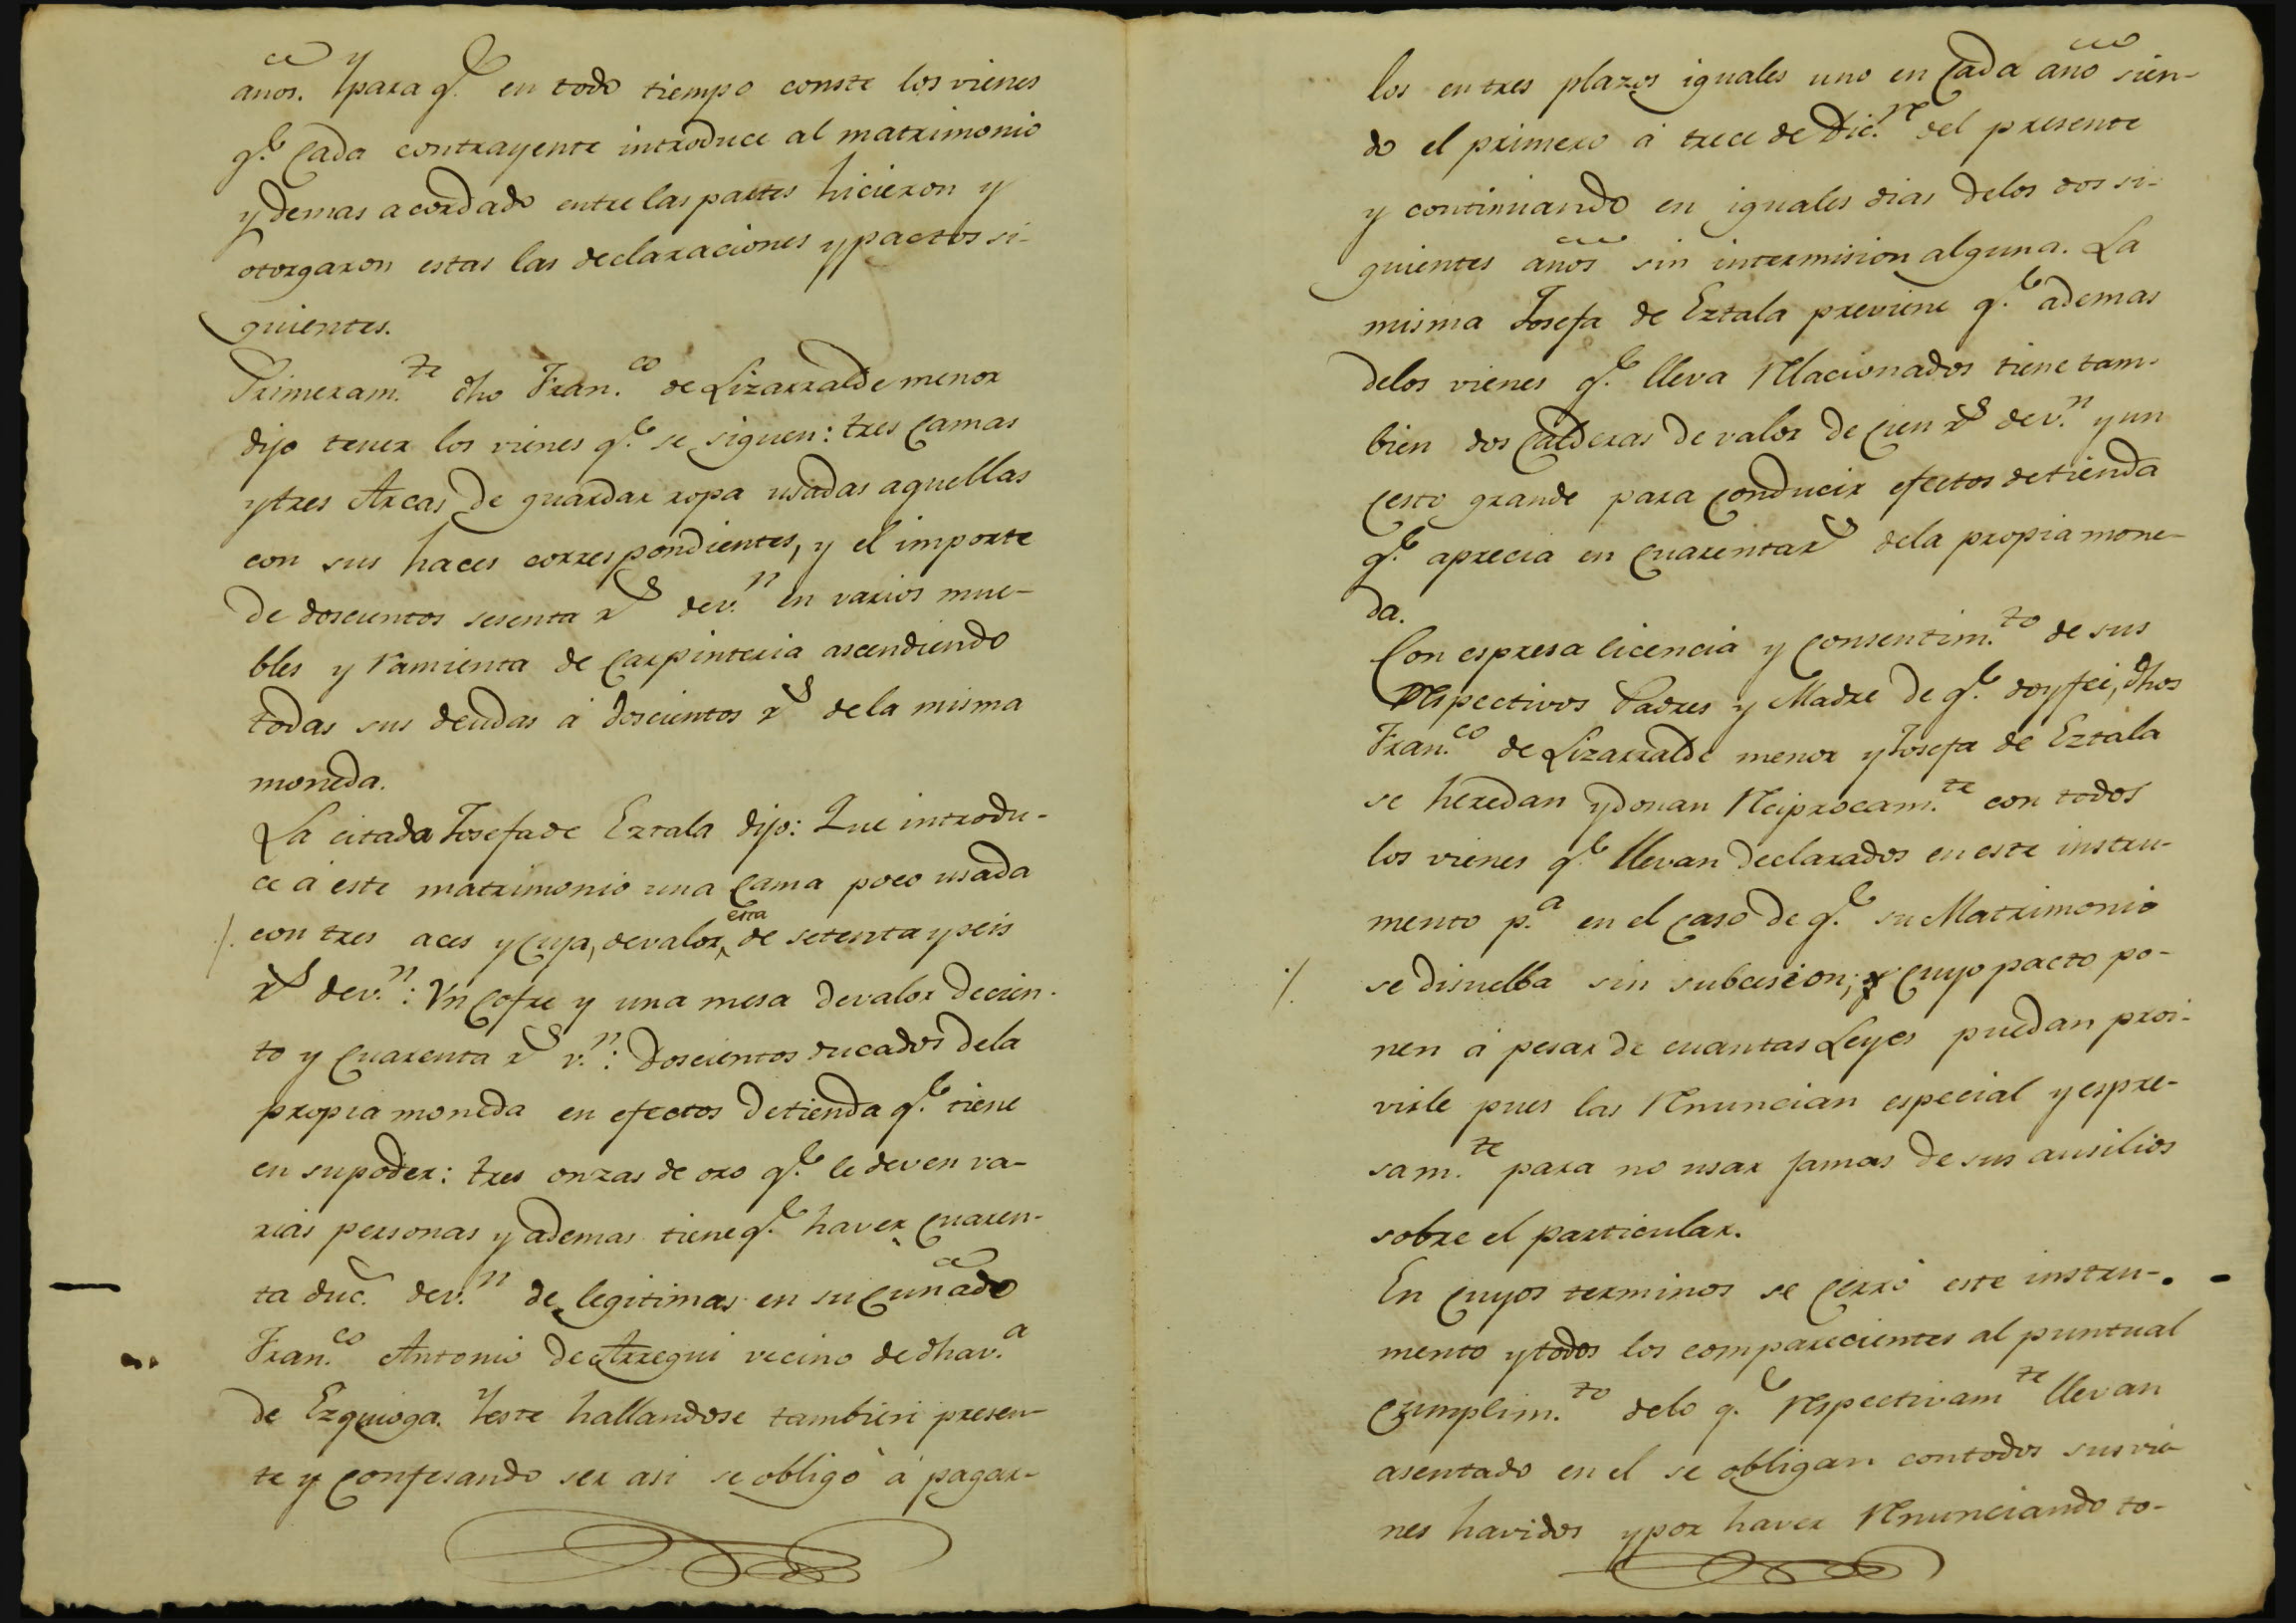 años. Y para q.e en todo tiempo conste los vienes
q.e cada contrayente introduce al matrimonio
y demas acordado entre las partes hicieron y
otorgaron estas las declaraciones y pactos si-
guientes.
Primeram.te dho Fran.co de Lizarralde menor
dijo tener los vienes q.e se siguen: tres camas
y tres Arcas de guardar ropa usadas aquellas
con sus haces correspondientes, y el importe
de doscientos sesenta r.s de v.n en varios mue-
bles y ramienta de carpinteria ascendiendo
todas sus deudas á doscientos r.s de la misma
moneda.
La citada Josefa de Eztala dijo: Que introdu-
ce á este matrimonio una cama poco usada
./. con tres aces y cuja, de valor esta de setenta y seis
r.s de v.n: Vn cofre y una mesa de valor de cien-
to y cuarenta r.s v.n: Doscientos ducados de la
propia moneda en efectos de tienda q.e tiene
en su poder: tres onzas de oro q.e le deven va-
rias personas y ademas tiene q.e haver cuaren-
ta duc.s de v.n de legitimas en su cuñado
Fran.co Antonio de Arregui vecino de dha v.a
de Ezquioga. Y este hallandose tambien presen-
te y confesando ser asi se obligó á pagar-
los en tres plazos iguales uno en cada año sien-
do el primero á trece de Dic.re del presente
y continuando en iguales dias de los dos si-
guientes años sin intermision alguna. La
misma Josefa de Eztala previene q.e ademas
de los vienes q.e lleva relacionados tiene tam-
bien dos calderas de valor de cien r.s de v.n y un
cesto grande para conducir efectos de tienda
q.e aprecia en cuarenta r.s de la propia mone-
da.
Con espresa licencia y consentim.to de sus
respectivos Padres y Madre de q.e doy feé, dhos
Fran.co de Lizarralde menor y Josefa de Eztala
se heredan y donan reciprocam.te con todos
los vienes q.e llevan declarados en este instru-
mento p.a en el caso de q.e su Matrimonio
./. se disuelba sin subcesion; cuyo pacto po-
nen á pesar de cuantas Leyes puedan proi-
virle pues las renuncian especial y espre-
sam.te para no usar jamas de sus ausilios
sobre el particular.
En cuyos terminos se cerró este instru-
mento y todos los comparecientes al puntual
cumplim.to de lo q.e respectivam.te llevan
asentado en el se obligan con todos sus vie-
nes havidos y por haver renunciando to-